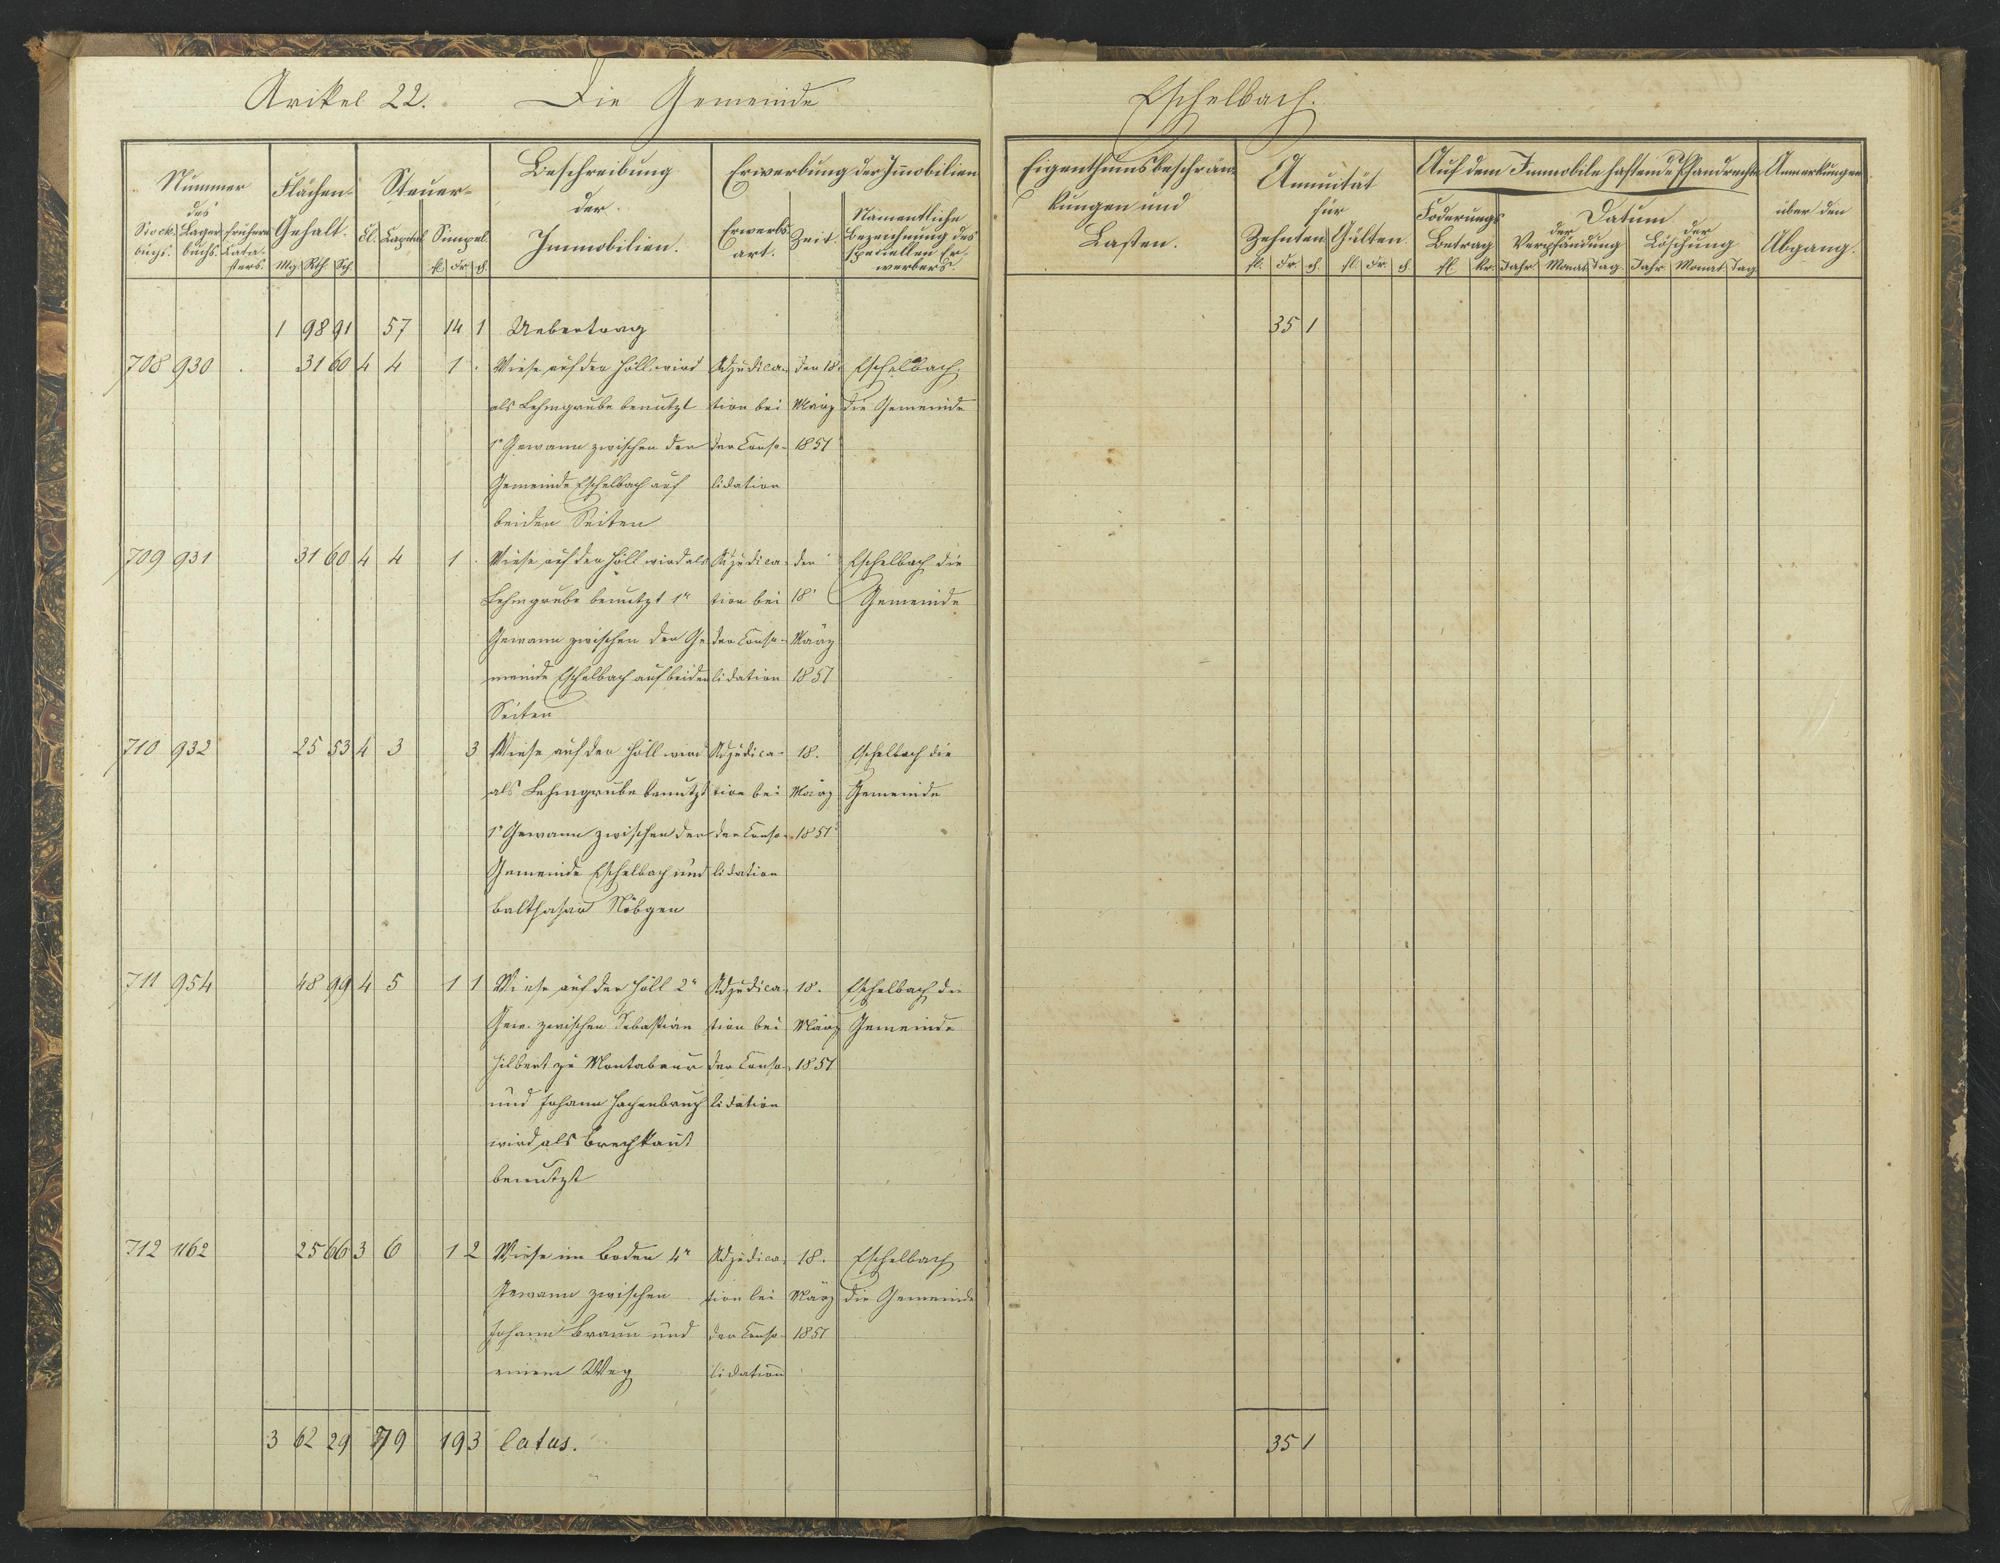 Arikel 22. Die Gemeinde Eschelbach.
Nummer des
Stock-buchs. Lager-buchs. frühern Cata-sters.
Flächen-Gehalt.
Mg. Rth. Sch.
Steuer-
Cl. Capital Simpel
fl. Kr. ₰
Beschreibung der Immobilien.
Erwerbung der Immobilien
Erwerbs-art. Zeit. Namentliche bezeichnung des speciellen Er-werbers.
Eigenthumsbeschrän-kungen und Lasten.
Annuität für
Zehnten Gülten.
fl. Kr. ₰ fl. Kr. ₰
Auf dem Immobile haftende Pfandrechte
Foderungs Betrag
fl. Kr.
Datum
der Verpfändung der Löschung
Jahr. Monat Tag. Jahr. Monat Tag
Anmerkungen über den Abgang.
1 98 91 57 14 1 Uebertrag 35 1
708 930 31 60 4 4 1 Wiese auf der Höll wird Adjudica- den 18. Eschelbach
als Lehmgrube benutzt tion bei März die Gemeinde
1r Gewann zwischen der der Conso- 1851
Gemeinde Eschelbach auf lidation
beiden Seiten
709 931 31 60 4 4 1 Wiese auf der Höll wird als Adjudica- den Eschelbach die
Lehmgrube benutzt 1r tion bei 18. Gemeinde
Gewann zwischen der Ge der Conso- März
meinde Eschelbach auf beiden lidation 1851
Seiten
710 932 25 53 4 3 3 Wiese auf der Höll wird Adjudica- 18. Eschelbach die
als Lehmgrube benutzt tion bei März Gemeinde
1r Gewann zwischen der der Conso- 1851
Gemeinde Eschelbach und lidation
Balthasar Nöbgen
711 954 48 99 4 5 1 1 Wiese auf der Höll 2r Adjudica- 18. Eschelbach die
Gew. zwischen Sebastian tion bei März Gemeinde
Hilbert zu Montabaur der Conso- 1851
und Johann Hachenbruch lidation
wird als Brechkaut
benutzt
712 1162 25 66 3 6 1 2 Wiese im Boden 4r Adjudica- 18. Eschelbach
Gewann zwischen tion bei März die Gemeinde
Johann Braun und der Conso- 1851
einem Weg lidation
3 62 29 79 19 3 Latus. 35 1